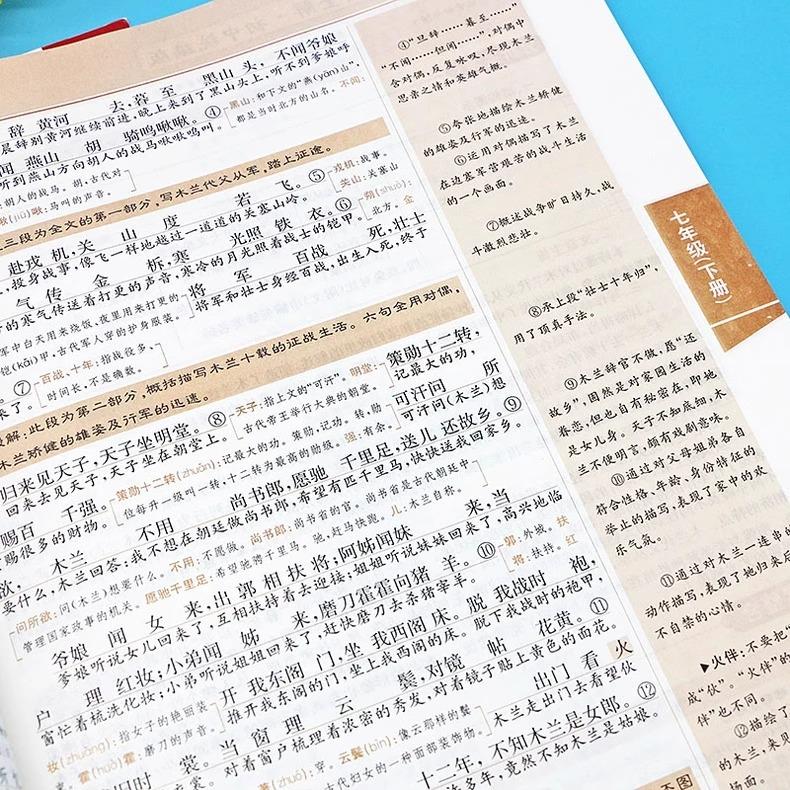 辞 黄河 去,暮 至 黑山 头, 不闻爷娘
晨辞别黄河继续前进,晚上来到了黑山头上,听不到爹娘呼
黑山:和下文的“燕(yān)山”,
都是当时北方的山名。不闻:
闻 燕山 胡 骑鸣啾啾。④
听到燕山方向胡人的战马啾啾鸣叫。
胡人的战马。胡,古代对
啾(jiū)啾:马叫的声音。
三段为全文的第一部分,写木兰代父从军,踏上征途。
赴戎 机,关 山 度 若 飞。⑤
戎机:战事。
关山:关塞山
,投身战事,像飞一样地越过一道道的关塞山岭。
朔(shuò):
北方。金
气 传 金 柝, 寒 光照 铁 衣。⑥
的寒气传送着打更的声音,寒冷的月光照着战士的铠甲。
军中白天用来烧饭、夜里用来打更的
铠(kǎi)甲,古代军人穿的护身服装。
将 军 百战 死,壮士
将军和壮士身经百战,出生入死,终于
⑦
来了。
百战、十年:指战役多、
时间长,不是确数。
解:此段为第二部分,概括描写木兰十载的征战生活。六句全用对偶,
木兰矫健的雄姿及行军的迅速。
归来见天子,天子坐明堂。⑧
回来去见天子,天子坐在朝堂上。
天子:指上文的“可汗”。明堂:
古代帝王举行大典的朝堂。
策勋十二转,
记最大的功,
策勋十二转(zhuǎn):记最大的功。策勋,记功。转,勋
位每升一级叫一转,十二转为最高的勋级。强:有余。
赐百 千强。
赐很多的财物。
可汗问 所
可汗问(木兰)想
欲, 木兰 不用 尚书郎,愿驰 千里足,送儿 还故乡。⑨
要什么,木兰回答:我不想在朝廷做尚书郎,希望有匹千里马,快快送我回家乡。
问所欲:问(木兰)想要什么。不用:不愿做。尚书郎:尚书省的官。尚书省是古代朝廷中
管理国家政事的机关。愿驰千里足:希望驰骋千里马。驰,赶马快跑。儿:木兰自称。
爷娘 闻 女 来,出 郭 相 扶 将;阿姊闻妹 来,当
爹娘听说女儿回来了,互相扶持着去迎接;姐姐听说妹妹回来了,高兴地临
郭:外城。扶
将:扶持。红
户 理 红妆;小弟闻 姊 来,磨刀霍霍向猪 羊。⑩
富忙着梳洗化妆;小弟听说姐姐回来了,赶快磨刀去杀猪宰羊。
妆(zhuāng):指女子的艳丽装
霍(huò)霍:磨刀的声音。
开 我东阁 门,坐 我西阁 床。脱 我战时 袍,
推开我东阁的门,坐上我西阁的床。脱下我战时的袍甲,
旧时 裳。当 窗 理 云 鬓,对镜 帖 花黄。⑪
对着窗户梳理着浓密的秀发,对着镜子贴上黄色的面花。
著(zhuó):穿。云鬓(bìn):像云那样的鬓
古代妇女的一种面部装饰物。
出门 看 火
木兰走出门去看望伙
十二年,不知木兰是女郎。⑫
许多年,竟然不知木兰是姑娘。
④“旦辞……暮至……”
“不闻……但闻……”,对偶中
含对偶,反复咏叹,尽现木兰
思亲之情和英雄气概。
⑤夸张地描绘木兰矫健
的雄姿及行军的迅速。
⑥运用对偶描写了木兰
在边塞军营艰苦的战斗生活
的一个画面。
⑦概述战争旷日持久,战
斗激烈悲壮。
⑧承上段“壮士十年归”,
用了顶真手法。
⑨木兰辞官不做,愿“还
故乡”,固然是对家园生活的
眷恋,但也自有秘密在,即她
是女儿身。天子不知底细,木
兰不便明言,颇有戏剧意味。
⑩通过对父母姐弟各自
符合性格、年龄、身份特征的
举止的描写,表现了家中的欢
乐气氛。
⑪通过对木兰一连串的
动作描写,表现了她归来后
不自禁的心情。
▶火伴:不要把“
成“伙”。“火伴”的
伴”也不同。
⑫描绘了
的木兰,来见
场面。
七年级(下册)